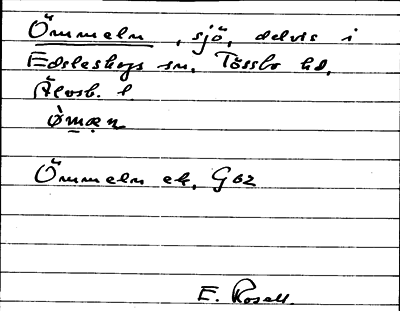 Ömmeln, sjö, delvis i
Edsleskogs sn, Tössbo hd,
Älvsb. l.
ò̀mæn
Ömmeln ek. G02
E. Rosell.